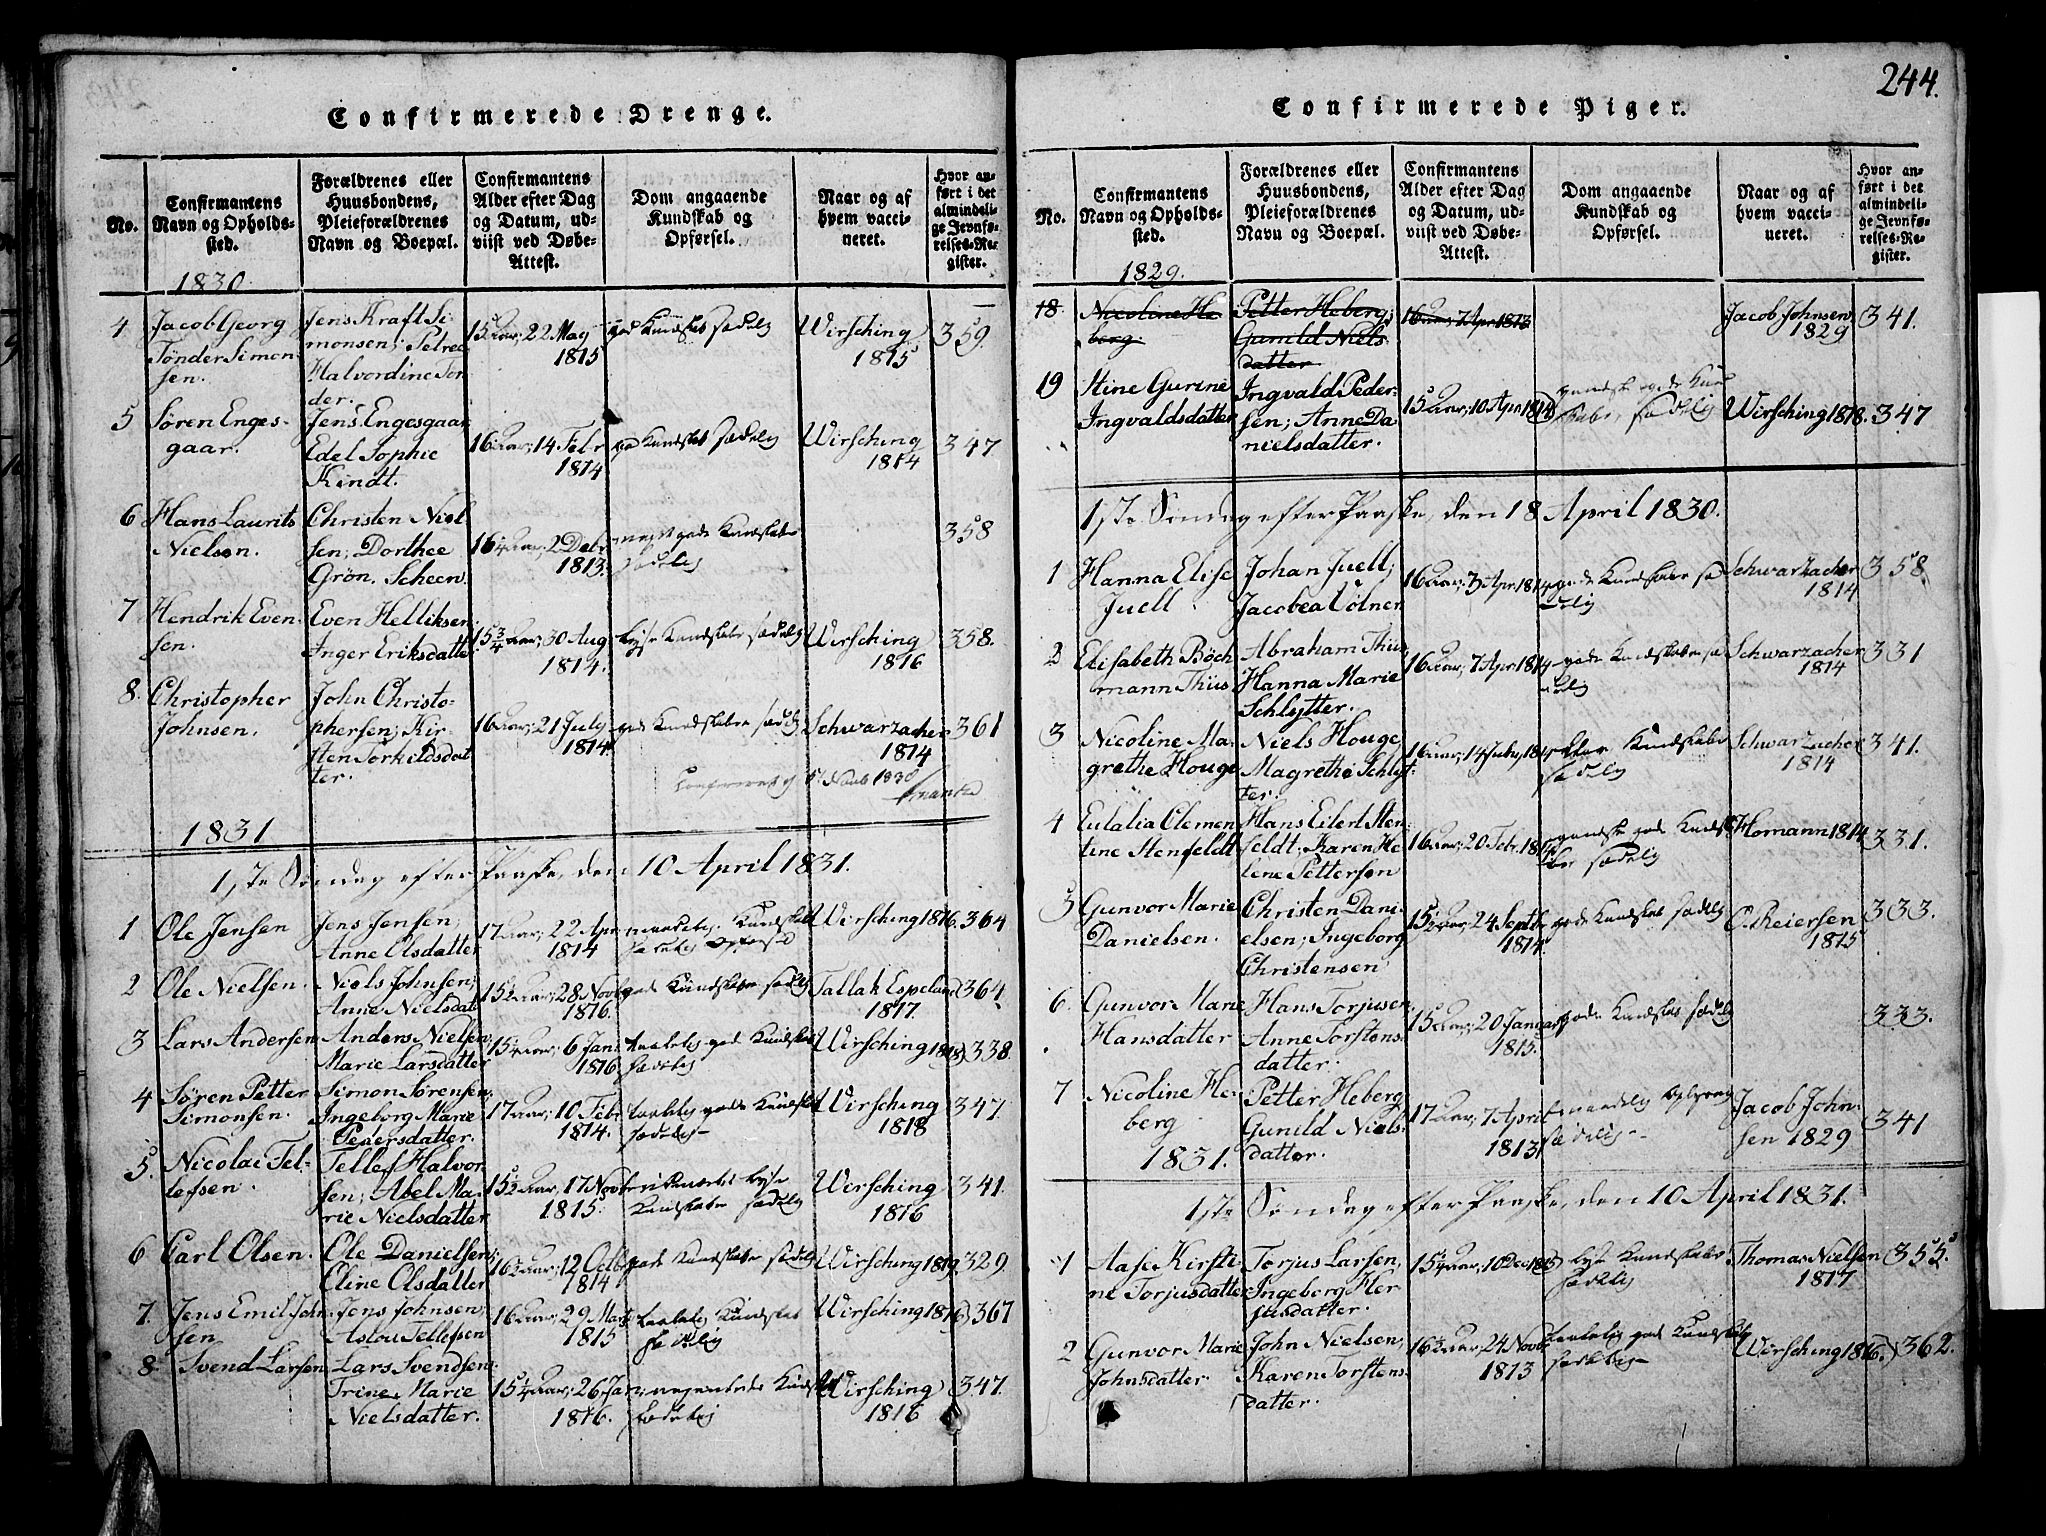 Confirmerede Drenge.
No.
Confirmantens
Navn og Opholds-
sted.
Forældrenes eller
Huusbondens,
Pleieforældrenes
Navn og Boepæl.
Confirmantens
Alder efter Dag
og Datum, ud-
viist ved Døbe-
Attest.
Dom angaaende
Kundskab og
Opførsel.
Naar og af
hvem vacci-
neret.
Hvor an-
ført i det
almindeli-
ge Jevnfø-
relses-Re-
gister.
1830
4 Jacob Georg
Tønder Simon-
sen.
Jens Kraft Si-
monsen; Petree
Halvordine Tøn-
der.
15 Aar; 22 May
1815
god Kundskab sædelig
Wirsching
1815
359.
5 Søren Enges-
gaar.
Jens Engesgaar,
Edel Sophie
Kindt.
16 Aar; 14 Febr
1814
god Kundskab sædelig
Wirsching
1814
347
6 Hans Laurits
Nielsen.
Christen Niel-
sen; Dorthee
Grøn. Scheen.
16¼ Aar; 2 Decbr
1813.
meget gode Kundskaber
sædelig
358
7 Hendrik Even-
sen.
Even Helliksen;
Inger Eriksdatter
15¾ Aar; 30 Aug
1814.
Kundskaber sædelig
Wirsching
1816
358.
8. Christopher
Johnsen.
John Christo-
phersen; Kir-
sten Torkildsdat-
ter.
16 Aar; 21 July
1814.
god Kundskaber sædelig
Schwarzacher
1814
361
1831
1ste Søndag efter Paaske, den 10 April 1831.
1 Ole Jensen
Jens Jensen;
Anne Olsdatter
17 Aar; 22 Apr
1814
Kundskab
Wirsching 1816.
364
2 Ole Nielsen.
Niels Johnsen;
Anne Nielsdat
15½ Aar; 28 Novbr
1816.
gode Kundskaber sædelig
Tallak Espeland
1817.
364
3 Lars Andersen
Anders Nielsen
Marie Larsdatter
15¼ Aar; 6 Jan:
1816
temmelig god Kundskab
sædelig
Wirsching 1818)
338.
4 Søren Petter
Simonsen.
Simon Sørensen,
Ingeborg Marie
Peersdatter.
17 Aar; 10 Febr
1814.
temmelig gode Kundskab
sædelig
Wirsching
1818
347
5. Nicolai Tel-
lefsen.
Tellef Halvor-
sen; Abel Ma-
rie Nielsdatter
15½ Aar; 17 Novbr
1815.
Kundskaber sædelig
Wirsching
1816
341.
6 Carl Olsen.
Ole Danielsen;
Eline Olsdatter
16½ Aar; 12 Octbr
1814
gode Kundskaber sædelig
Wirsching 1819.
329.
7. Jens Emil John-
sen
Jens Johnsen;
Aslou Tellefsen
16 Aar; 29 Marts
1815
temmelig Kundskab
sædelig
Wirsching 1816)
367
8 Svend Larsen
Lars Svendsen;
Trine Marie
Nielsdatter.
15¼ Aar; 26 Jan
1816.
sædelig
Wirsching
1816
347.
244.
Confirmerede Piger.
No.
Confirmantens
Navn og Opholds-
sted.
Forældrenes eller
Huusbondens,
Pleieforældrenes
Navn og Boepæl.
Confirmantens
Alder efter Dag
og Datum, ud-
viist ved Døbe-
Attest.
Dom angaaende
Kundskab og
Opførsel.
Naar og af
hvem vacci-
neret.
Hvor an-
ført i det
almindeli-
ge Jevnfø-
relses-Re-
gister.
1829.
18. Nicoline He-
berg.
Petter Heberg;
Gunild Niels-
datter
16 Aar; 7 Apr 1813
Jacob Johnsen
1829
341.
19 Stine Gurine
Ingvaldsdatter
Ingvald Peder-
sen; Anne Da-
nielsdatter.
15 Aar; 10 Apr. 1814
ganske gode Kund-
skaber, sædelig
Wirsching 1818.
347
1ste Søndag efter Paaske, den 18 April 1830.
1 Hanna Elise
Juell
Johan Juell;
Jacobea Völner
16 Aar; 3 Apr. 1814
gode Kundskaber sæ-
delig
Schwarzacher
1814
358
2 Elisabeth Böch-
mann Thiis
Abraham Thiis;
Hanna Marie
Schlytter.
16 Aar; 7 Apr 1814
gode Kundskaber sæ-
delig
Schwarzacher
1814
331
3 Nicoline Ma-
grethe Houge
Niels Houge;
Magrethe Schlyt-
ter.
16 Aar; 14 July 1814
Kundskaber
sædelig
Schwarzacher
1814
341.
4 Eulalia Clemen-
tine Stenfeldt
Hans Eilert Sten-
feldt; Karen He-
lene Pettersen
16 Aar; 20 Febr. 1814
ganske god Kundska-
ber sædelig
Homann 1814
331.
5 Gunvor Marie
Danielsen.
Christen Dani-
elsen; Ingeborg
Christensen
15½ Aar; 24 Septbr
1814.
gode Kundskab sædelig
C. Reiersen
1815
333.
6. Gunvor Marie
Hansdatter
Hans Torjusen;
Anne Torstens-
datter.
15 Aar; 20 Januar
1815.
gode Kundskab sædelig
333.
7 Nicoline He-
berg
Petter Heberg
Gunild Niels-
datter.
17 Aar; 7 April
1813
sædelig
Jacob John-
sen 1829
341
1831.
1ste Søndag efter Paaske, den 10 April 1831.
1 Aase Kirsti-
ne Torjusdatter
Torjus Larsen;
Ingeborg Her-
jusdatter.
15¼ Aar; 10 Dec 1815)
Kundskaber
sædelig
Thomas Nielsen
1817
355.
2 Gunvor Marie
Johnsdatter.
John Nielsen;
Karen Torstens-
datter.
16½ Aar; 24 Novbr
1813
temmelig god Kundskab
sædelig
Wirsching 1816.)
362.